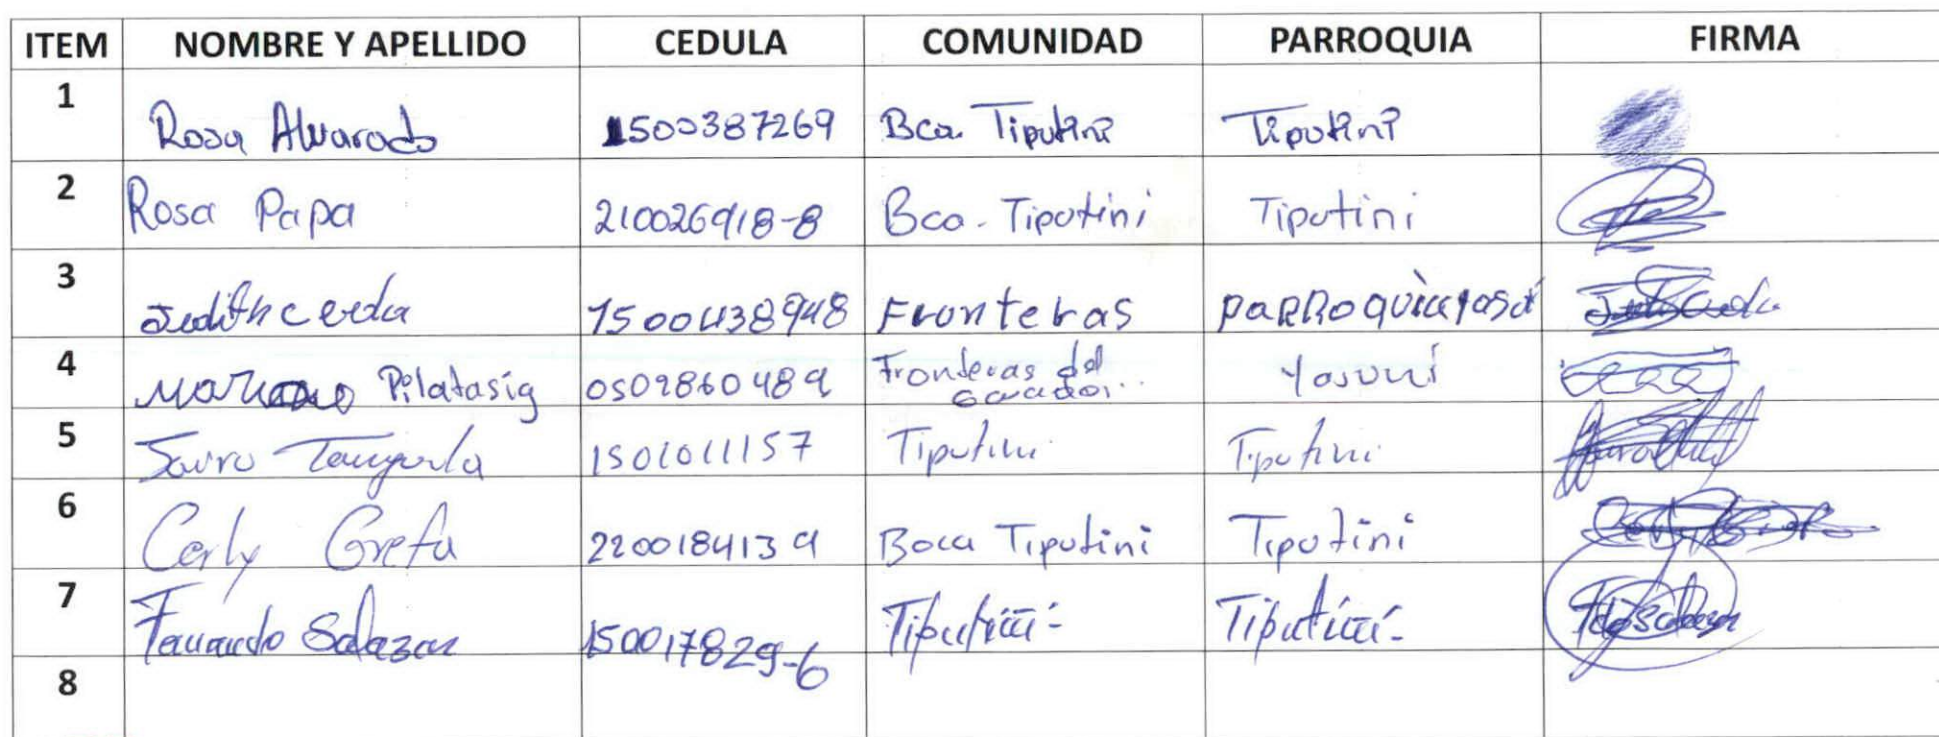 ITEM NOMBRE Y APELLIDO CEDULA COMUNIDAD PARROQUIA FIRMA
1 Rosa Alvarado 1500387269 Bca. Tiputini Tiputini
2 Rosa Papa 210026918-8 Bca. Tiputini Tiputini
3 Judith cerda 1500438948 Fronteras PARROQuia
4 Pilatasig 0502860489 Fronteras del Yasuni
5 1501011157 Tiputini Tiputini
6 Carly Grefa 2200184139 Boca Tiputini Tiputini
7 Fernando Salazar 150017829-6 Tiputini- Tiputini-
8